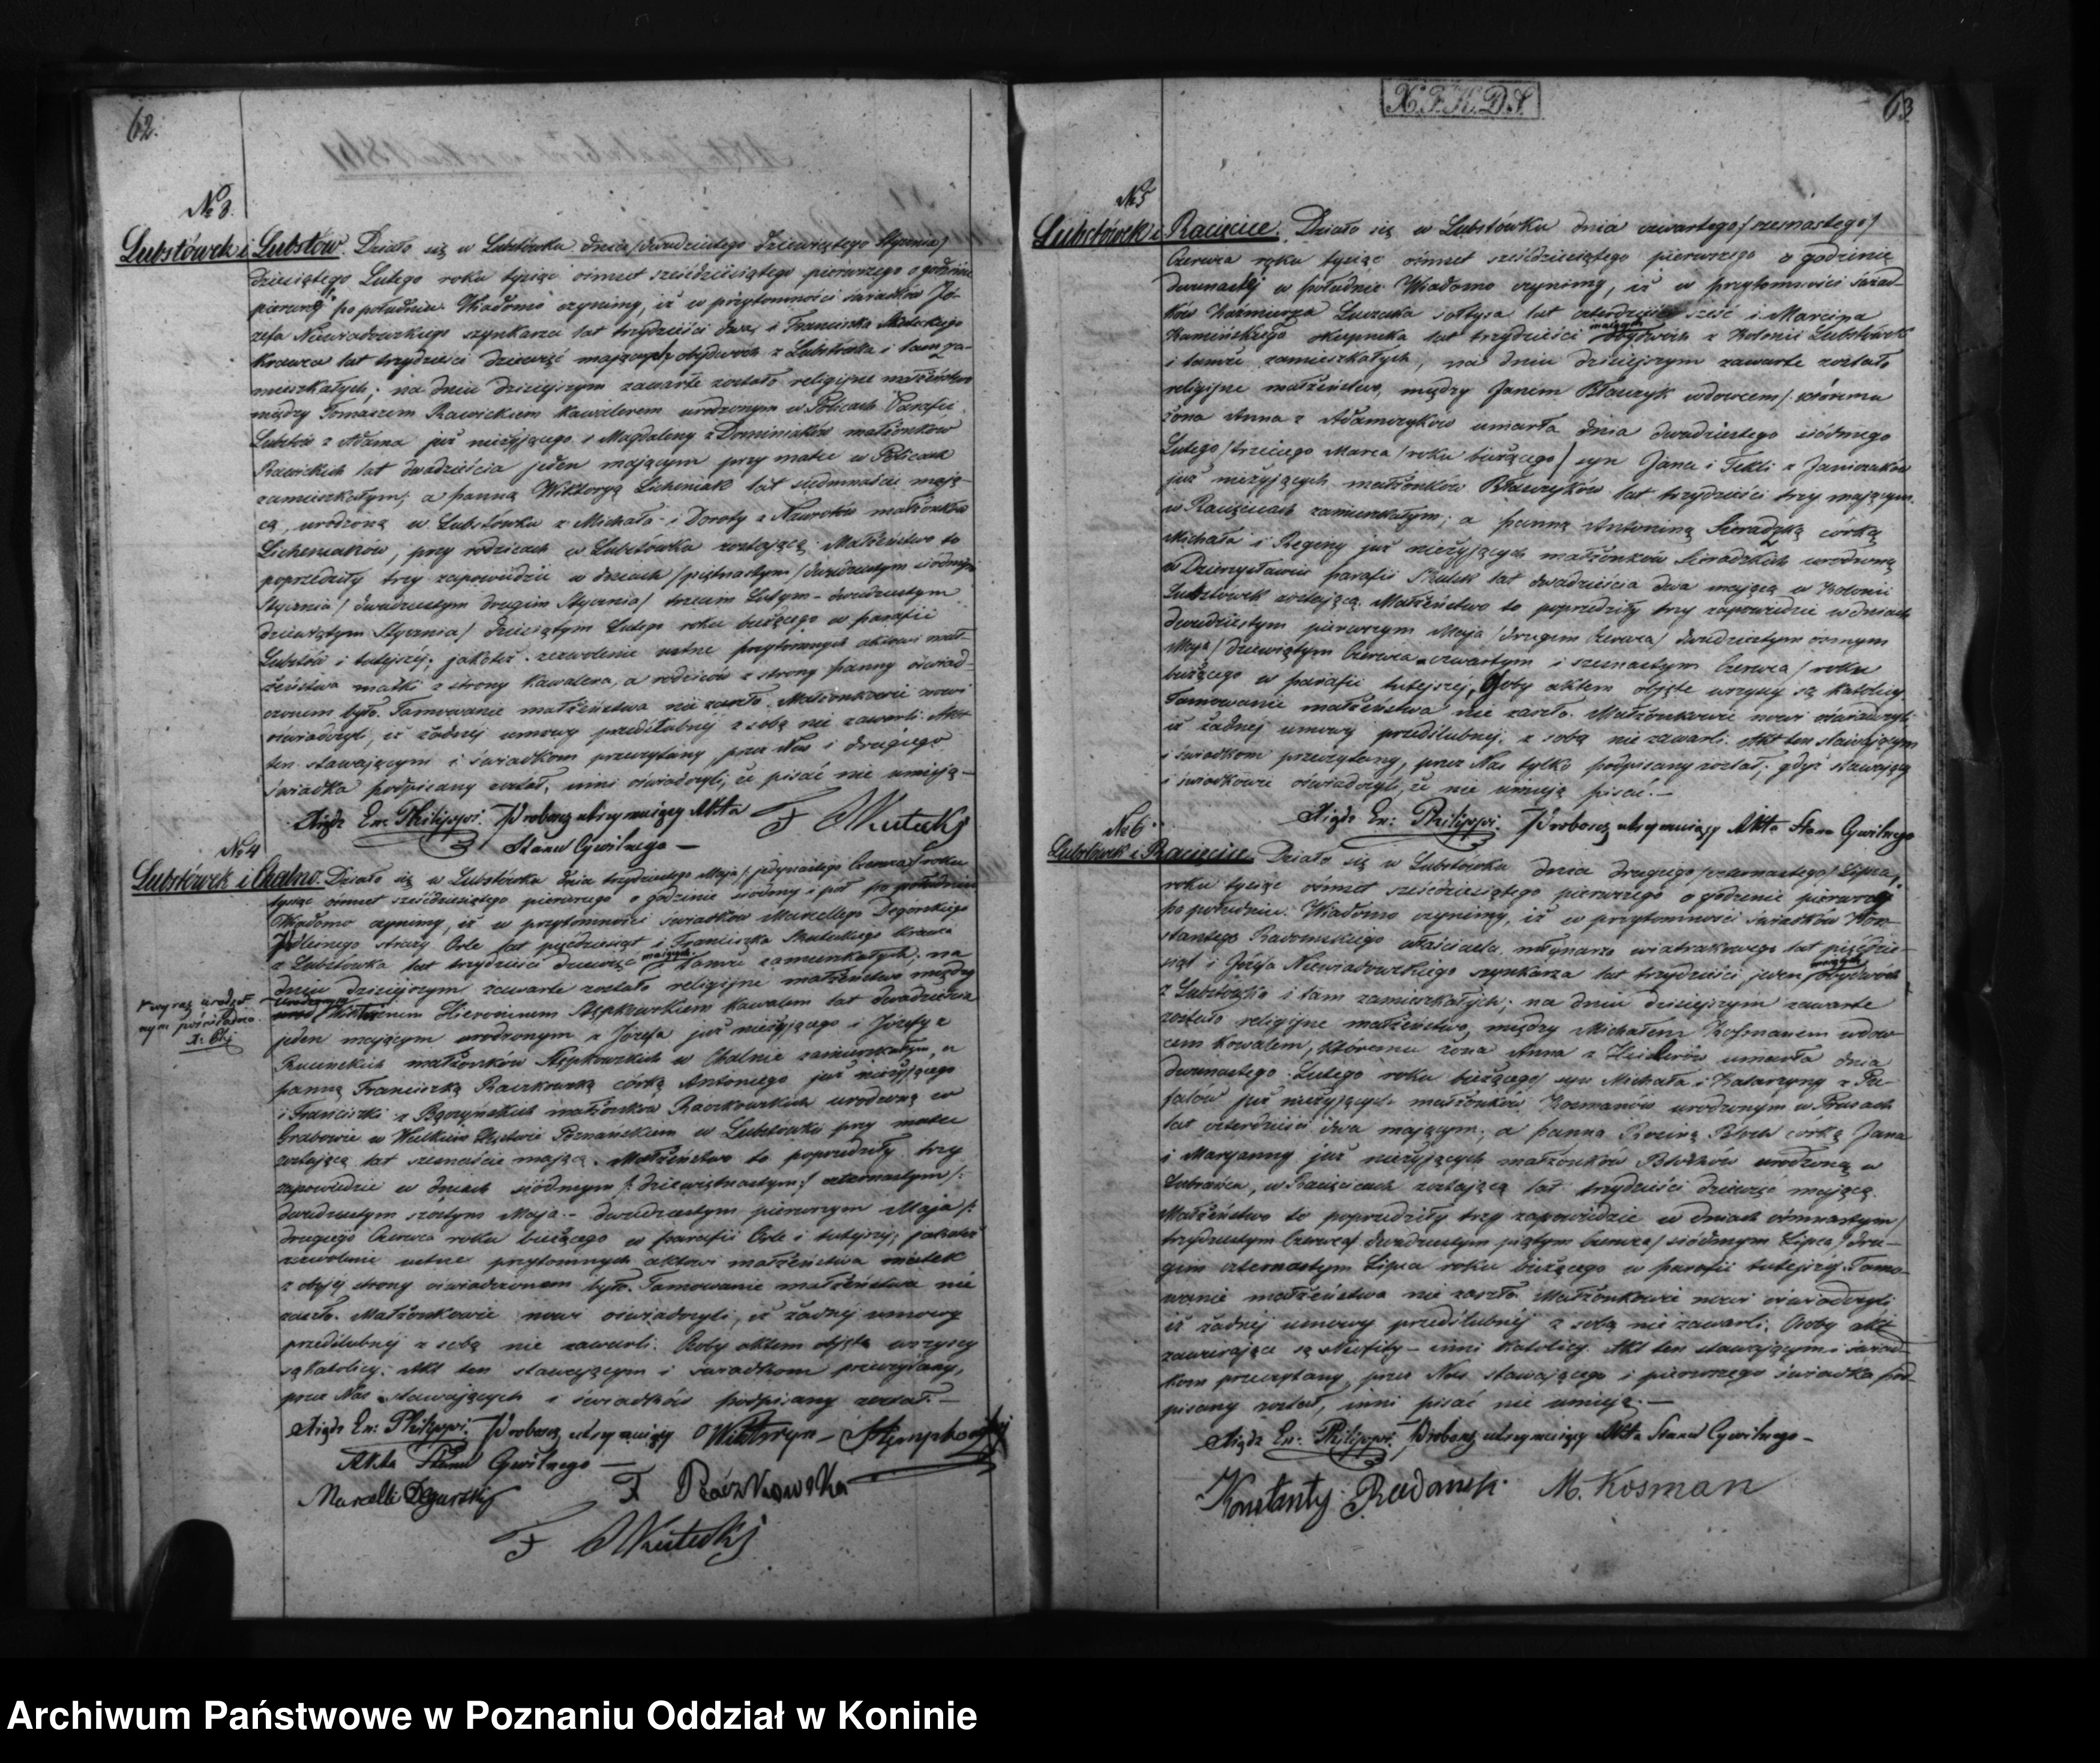 62.
No 3.
Lubstówek i Lubstow. Działo się w Lubstówku dnia /dwudziestego dziewiątego Stycznia/
dziesiątego Lutego roku tysiąc ośmset sześćdziesiątego pierwszego o godzinie
pierwszej po południu. Wiadomo czynimy, iż w przytomności świadków Jó-
zefa Niewiadowskiego szynkarza lat trzydzieści dwa, i Franciszka Skuteckiego
Krawca lat trzydzieści dziewięć mających obydwóch z Lubstówka i tam za-
mieszkałych; na dniu dzisiejszym zawarte zostało religijne małżeństwo
między Tomaszem Rawickiem kawalerem urodzonym w Policach Parafii
Lubstów z Adama już nieżyjącego i Magdaleny z Dominiaków małżonków
Rawickich lat dwadzieścia jeden mającym przy matce w Policach
zamieszkałym; a panną Wiktoryą Licheniak lat siedmnaście mają-
cą, urodzoną w Lubstówku z Michała i Doroty z Nawrotów małżonków
Licheniaków, przy rodzicach w Lubstówku zostającą. Małżeństwo to
poprzedziły trzy zapowiedzie w dniach /piętnastym/ dwudziestym siódmym
Stycznia/ dwudziestym drugim Stycznia/ trzecim Lutym - dwudziestym
dziewiątym Stycznia/ dziesiątym Lutego roku bieżącego w parafii
Lubstów i tutejszej; jakoteż zezwolenie ustne przytomnych aktowi mał-
żeństwa matki z strony Kawalera, a rodziców z strony panny oświad-
czonem było. Tamowanie małżeństwa nie zaszło. Małżonkowie nowi
oświadczyli, iż żadnej umowy przedślubnej z sobą nie zawarli. Akt
ten stawającym i świadkom przeczytany, przez Nas i drugiego
świadka podpisany został, inni oświadczyli, że pisać nie umieją -
Xiądz En: Philippi. Proboszcz utrzymujący Akta F Skutecki
Stanu Cywilnego -
No 4
Lubstówek i Chalno. Działo się w Lubstówku dnia trzydziestego Maja/ jedynastego Czerwca/ roku
tysiąc ośmset sześćdziesiątego pierwszego o godzinie siódmej i pół po południu
Wiadomo czynimy, iż w przytomności świadków Marcellego Degórskiego
Podleśnego straży Orle lat pięćdziesiąt i Franciszka Skuteckiego Krawca
z Lubstówka lat trzydzieści dziewięć mających tamże zamieszkałych; na
dniu dzisiejszym zawarte zostało religijne małżeństwo między
Hieronimem Stępkowskiem kawalerem lat dwadzieścia
jeden mającym urodzonym z Józefa już nieżyjącego i Józefy z
małżonków Stępkowskich w Chalnie zamieszkałym, a
panną Franciszką Raczkowską córką Antoniego już nieżyjącego
i Franciszki z małżonków Raczkowskich urodzoną w
Grabowie w Wielkiem Xięstwie Poznańskiem w Lubstówku przy matce
zostającą lat sześnaście mającą. Małżeństwo to poprzedziły trzy
zapowiedzie w dniach siódmym /: dziewiętnastym:/ czternastym /:
dwudziestym szóstym Maja.- dwudziestym pierwszym Maja /:
drugiego Czerwca roku bieżącego w parafii Orle i tutejszej; jakoteż
zezwolenie ustne przytomnych aktowi małżeństwa matek
z obojej strony oświadczonem było. Tamowanie małżeństwa nie
zaszło. Małżonkowie nowi oświadczyli, iż żadnej umowy
przedślubnej z sobą nie zawarli. Osoby aktem objęte wszyscy
są katolicy. Akt ten stawającym i świadkom przeczytany,
przez Nas stawających i świadków podpisany został. -
Xiądz En: Philippi. Proboszcz utrzymujący
Akta Stanu Cywilnego -
F Raczkowska
F Skutecki
X. F. K. D. S.
63
No 5
Lubstówek i Racięcice. Działo się w Lubstówku dnia czwartego/ szesnastego/
Czerwca roku tysiąc ośmset sześćdziesiątego pierwszego o godzinie
dwunastej w południe. Wiadomo czynimy, iż w przytomności świad-
ków Kaźmierza sołtysa lat czterdzieści sześć i Marcina
Kamińskiego okupnika lat trzydzieści mających obydwóch z Kolonii Lubstówek
i tamże zamieszkałych, na dniu dzisiejszym zawarte zostało
religijne małżeństwo, między Janem Błaszyk wdowcem /któremu
żona Anna z Adamczyków umarła dnia dwudziestego siódmego
Lutego /trzeciego Marca/ roku bieżącego/ syn Jana i Tekli z Janiszaków
już nieżyjących małżonków Błaszyków lat trzydzieści trzy mającym
w Racięcicach zamieszkałym; a panną Antoniną Sieradzką córką
Michała i Reginy już nieżyjących małżonków Sieradzkich urodzoną
w Dzierzysławiu parafii Skulsk lat dwadzieścia dwa mającą w Kolonii
Lubstówek zostającą. Małżeństwo to poprzedziły trzy zapowiedzie w dniach
dwudziestym pierwszym Maja /drugim Czerwca/ dwudziestym ósmym
Maja/ dziewiątym Czerwca - czwartym i szesnastym Czerwca/ roku
bieżącego w parafii tutejszej. Osoby aktem objęte wszyscy są katolicy
Tamowanie małżeństwa nie zaszło. Małżonkowie nowi oświadczyli
iż żadnej umowy przedślubnej z sobą nie zawarli. Akt ten stawającym
i świadkom przeczytany, przez Nas tylko podpisany został; gdyż stawający
i świadkowie oświadczyli, że nie umieją pisać. -
Xiądz En: Philippi. Proboszcz utrzymujący Akta Stanu Cywilnego
No 6.
Lubstówek i Racięcice. Działo się w Lubstówku dnia drugiego /czternastego/ Lipca,
roku tysiąc ośmset sześćdziesiątego pierwszego o godzinie pierwszej
po południu. Wiadomo czynimy, iż w przytomności świadków Kon-
stantego Radomskiego właściciela, młynarza wiatrakowego lat pięćdzie-
siąt i Józefa Niewiadowskiego szynkarza lat trzydzieści jeden mających obydwóch
z Lubstówka i tam zamieszkałych; na dniu dzisiejszym zawarte
zostało religijne małżeństwo, między Michałem Kosmanem wdow-
cem kowalem, któremu żona Anna z umarła dnia
dwunastego Lutego roku bieżącego/ syn Michała i Katarzyny z
już nieżyjących małżonków Kosmanów urodzonym w Prusach
lat czterdzieści dwa mającym; a panną Rozyną Bloch córką Jana
i Maryanny już nieżyjących małżonków Blochów urodzoną w
w Racięcicach zostającą lat trzydzieści dziewięć mającą.
Małżeństwo to poprzedziły trzy zapowiedzie w dniach ośmnastym/
trzydziestym Czerwca/ dwudziestym piątym Czerwca/ siódmym Lipca/ dru-
gim czternastym Lipca roku bieżącego w parafii tutejszej. Tamo-
wanie małżeństwa nie zaszło. Małżonkowie nowi oświadczyli
iż żadnej umowy przedślubnej z sobą nie zawarli. Osoby akt
zawierające są - inni Katolicy. Akt ten stawającym i świad-
kom przeczytany, przez Nas stawającego i pierwszego świadka pod-
pisany został, inni pisać nie umieją. -
Xiądz En: Philippi. Proboszcz utrzymujący Akta Stanu Cywilnego -
Konstanty Radomski M. Kosman
Archiwum Państwowe w Poznaniu Oddział w Koninie